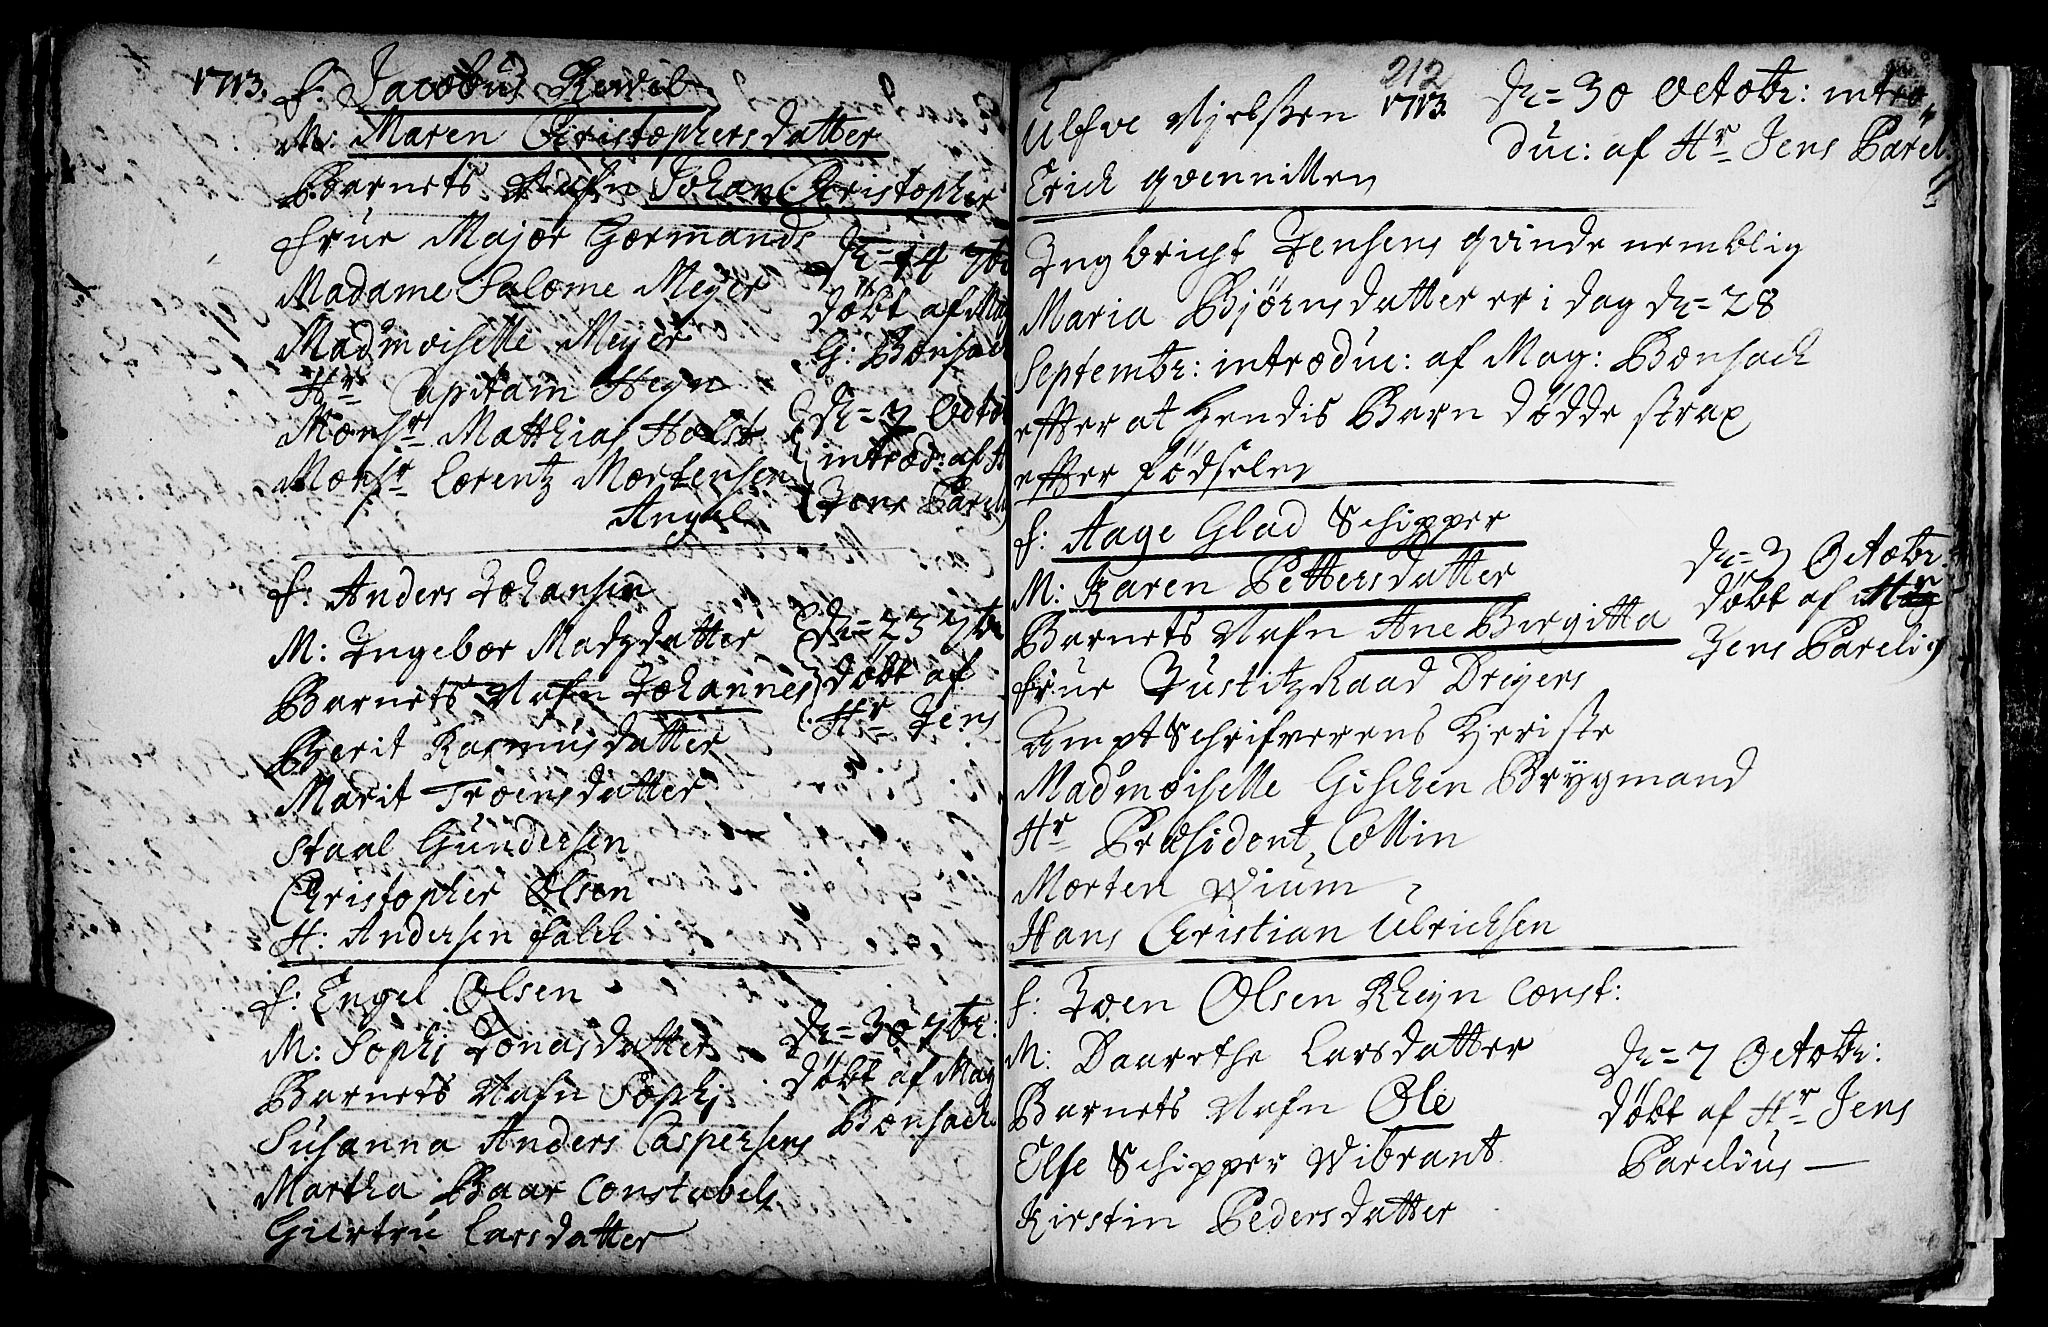 1713.
f: Jacobus Kervel
M: Maren Christophersdatter
Barnets Nafn Johan Christopher
Frue Major Gormands
Madame Salome Meyer
Madmoiselle Meyer
Hr Capitain Heyn
Monsr Matthias Holst
Monsr Lorentz Mortensen
Angel
dn= 14 7br
døbt af Mag
G: Bonsach
dn= 7 Octo
introd: af H
Jens Pareli
f: Anders Johansen
M: Ingebor Madzdatter
Barnets Nafn Johannes
Berit Rasmusdatter
Marit Troensdatter
Staal Gundersen
Christopher Olsen
H: Andersen Falch
dn= 23 7br
døbt af
Hr Jens
f: Engel Olsen
M: Sophi Jonasdatter
Barnets Nafn Sophi
Susanna Anders Caspersens
Martha Baar Constabels
Giertru Larsdatter
dn= 30 7br:
døbt af Mag
Bonsach
212
1713.
Ulfve Njelssen
Erich qvennitten
dn= 30 Octobr: intro
duc: af Hr Jens Parel:
Ingbricht Jensens qvinde nemblig
Maria Bjørnsdatter er i dag dn= 28
Septembr: introduc: af Mag: Bonsach
effter at hendis Barn dødde strax
effter fødselen
f: Aage Glad Schipper
M: Karen Pettersdatter
Barnets Nafn Ane Birgitta
Frue Justitz Raad Dreyers
Ampt Schrifverens Kjeriste
Madmoiselle Gischen Brygmand
Hr Præsident Collin
Morten Wium
Hans Christian Ulrichsen
dn= 3 Octobr:
døbt af Hr
Jens Parelig
f: Joen Olsen Rheyn Const:
M: Daarethe Larsdatter
Barnets Nafn Ole
Else Schipper Wibrant
Kirstin Pedersdatter
dn= 7 Octobr:
døbt af Hr Jens
Parelius